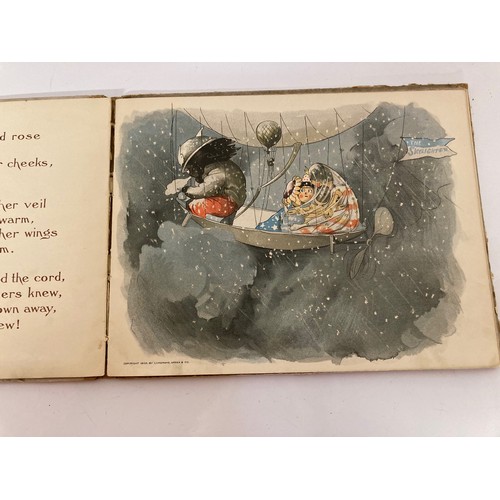 d rose
r cheeks,
her veil
warm,
her wings
m.
d the cord,
ers knew,
own away,
ew!
THE